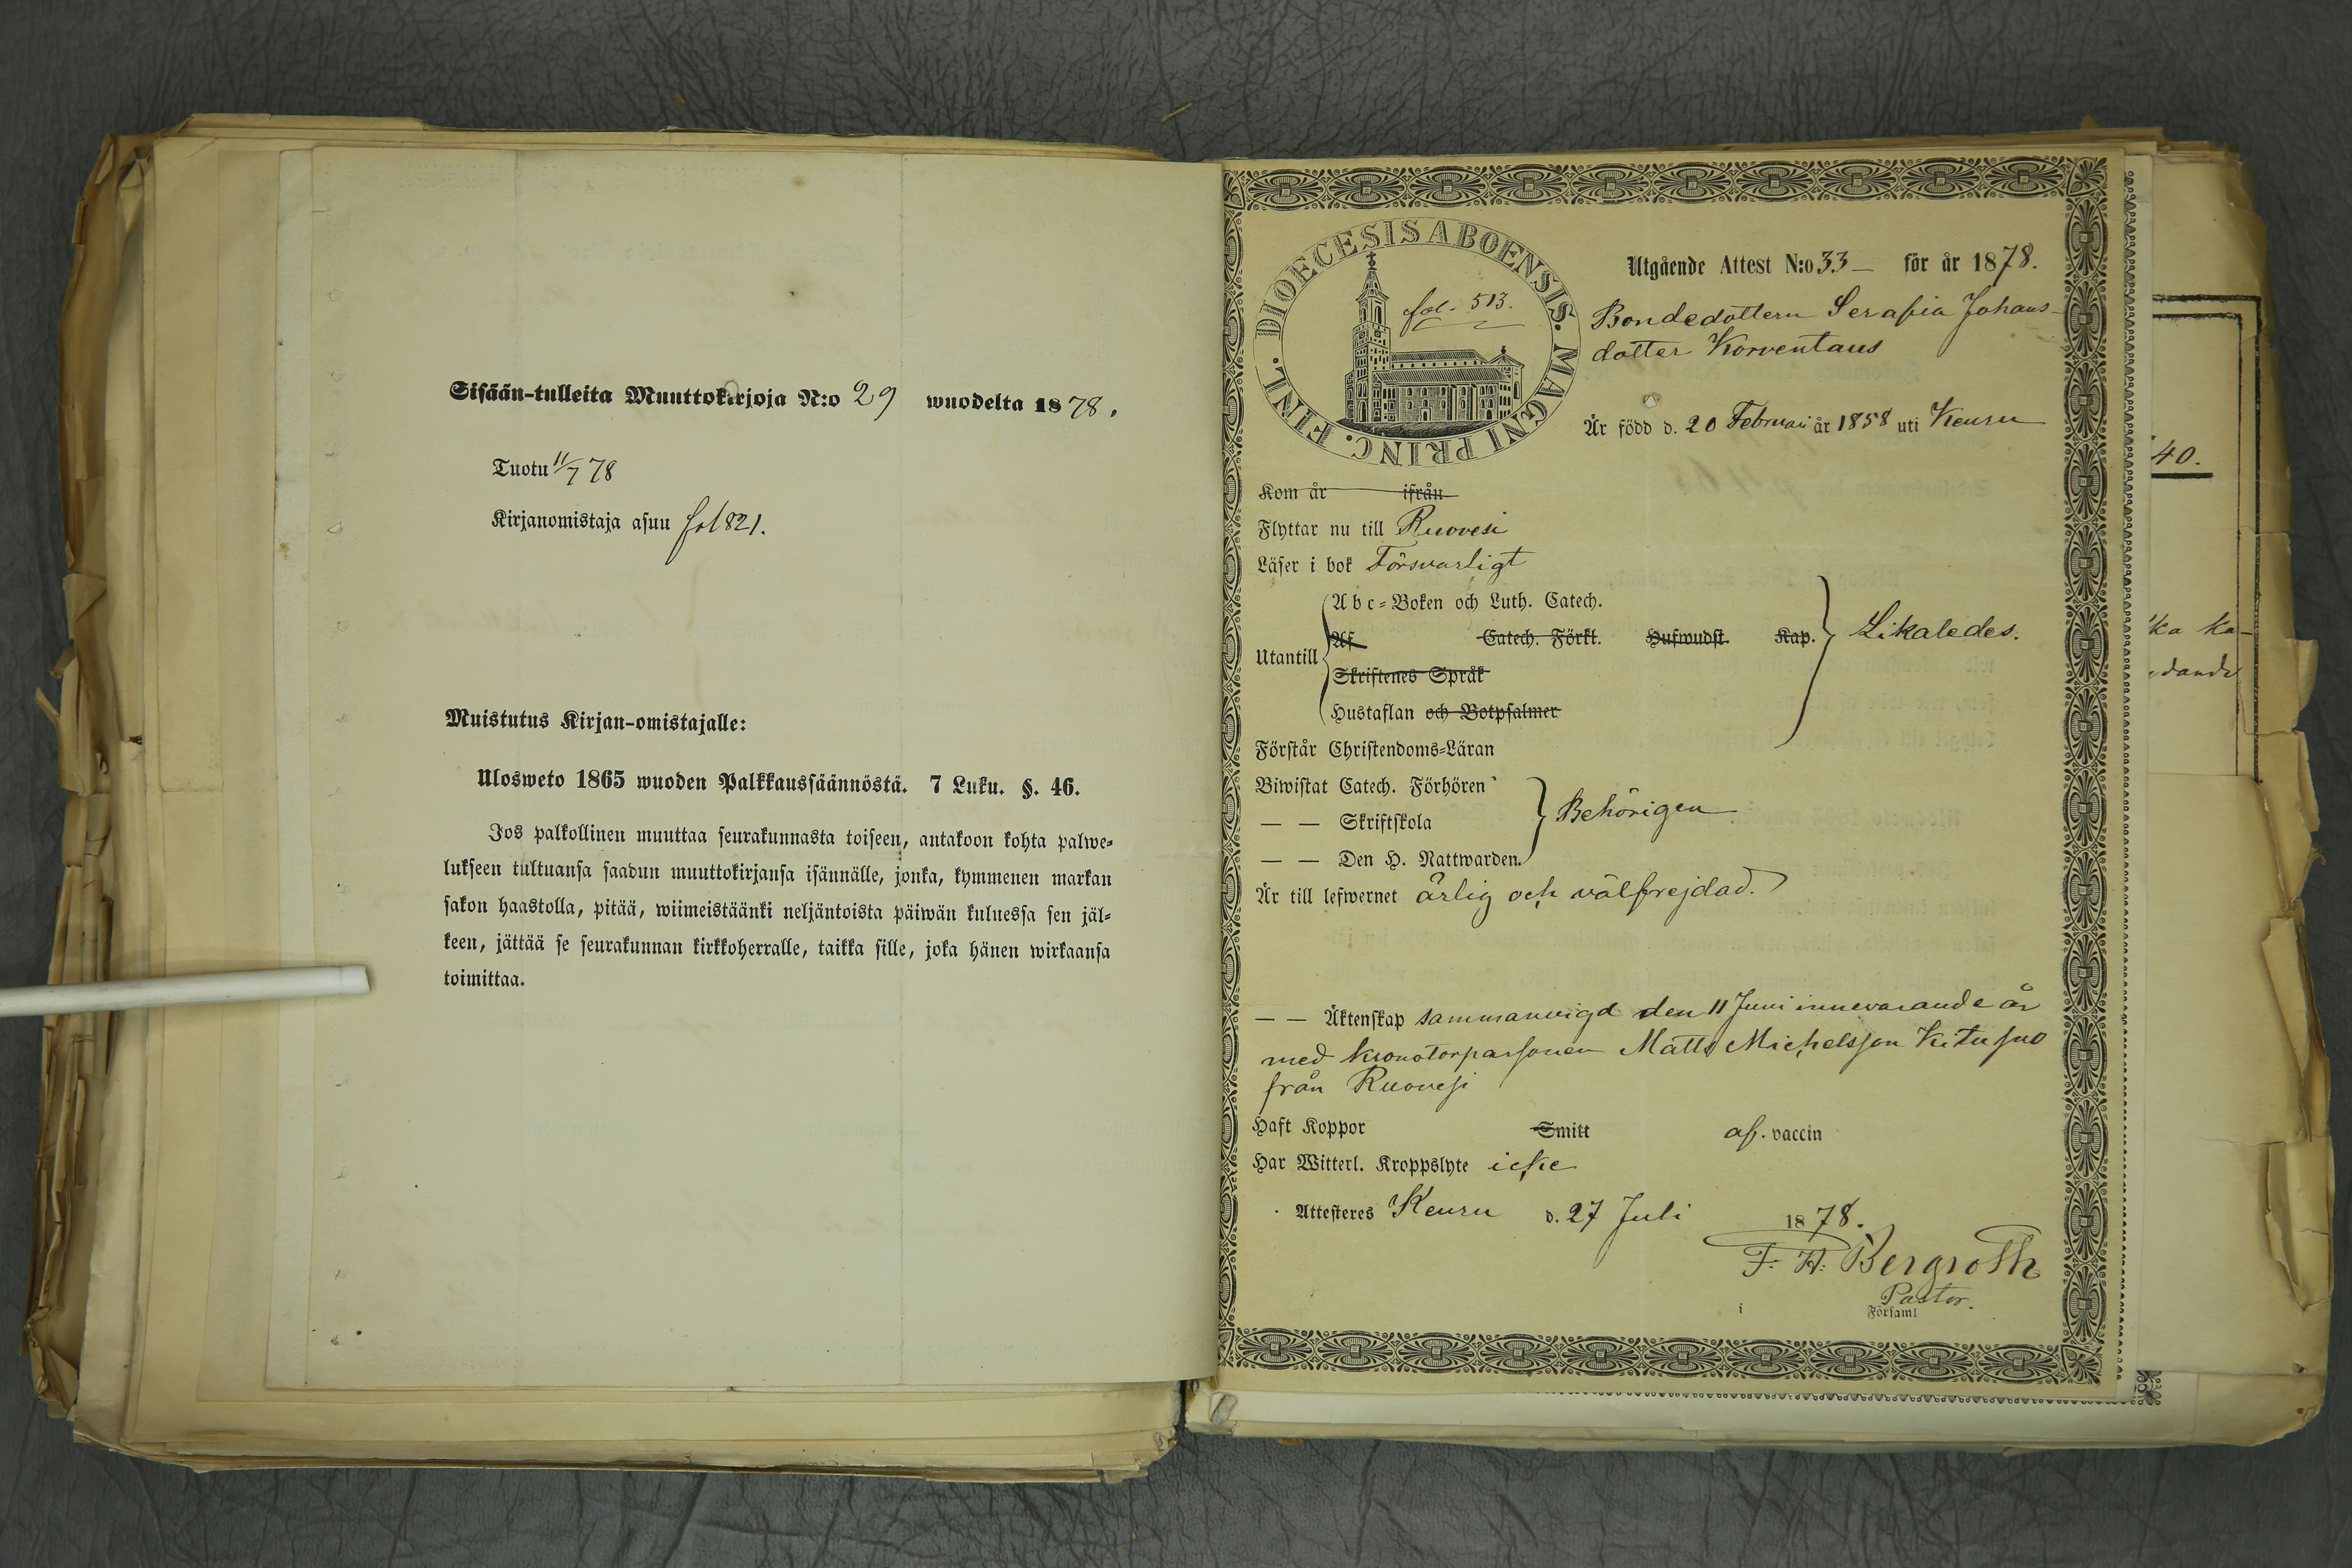 Sisään-tulleita Muuttokirjoja N:o 29 wuodelta 1878.
Tuotu 11/7 78
Kirjanomistaja asuu fol 821.
Muistutus Kirjan-omistajalle:
Ulosweto 1865 wuoden Palkkaussäännöstä. 7 Luku. §. 46.
Jos palkollinen muuttaa seurakunnasta toiseen, antakoon kohta palwe-
lukseen tultuansa saadun muuttokirjansa isännälle, jonka, kymmenen markan
sakon haastolla, pitää, wiimeistäänki neljäntoista päiwän kuluessa sen jäl-
keen, jättää se seurakunnan kirkkoherralle, taikka sille, joka hänen wirkaansa
toimittaa.
DIOECESIS ABOENSIS. MAGNI PRINC. FINL.
fol. 513.
Utgående Attest N:o 33 för år 1878.
Bondedottern Serafia Johans-
dotter Korventaus
Är född d. 20 Februari år 1858 uti Keuru
Kom år ifrån
Flyttar nu till Ruovesi
Läser i bok Försvarligt
Utantill
Abc-Boken och Luth. Catech.
Af Catech. Förkl. Hufwudst. Kap.
Skriftenes Språk
Hustaflan och Botpsalmer
Likaledes.
Förstår Christendoms-Läran
Biwistat Catech. Förhören
— — Skriftskola
— — Den H. Nattwarden.
Behörigen
Är till lefwernet ärlig och välfrejdad.
— — Äktenskap sammanvigd den 11 Juni innevarande år
med kronotorparsonen Matts Michelsson Kitusuo
från Ruovesi
Haft Koppor Smitt af vaccin
Har Witterl. Kroppslyte icke
Attesteres Keuru d. 27 Juli 1878.
F. H. Bergroth
Pastor.
i Församl
40.
ka ka-
dande